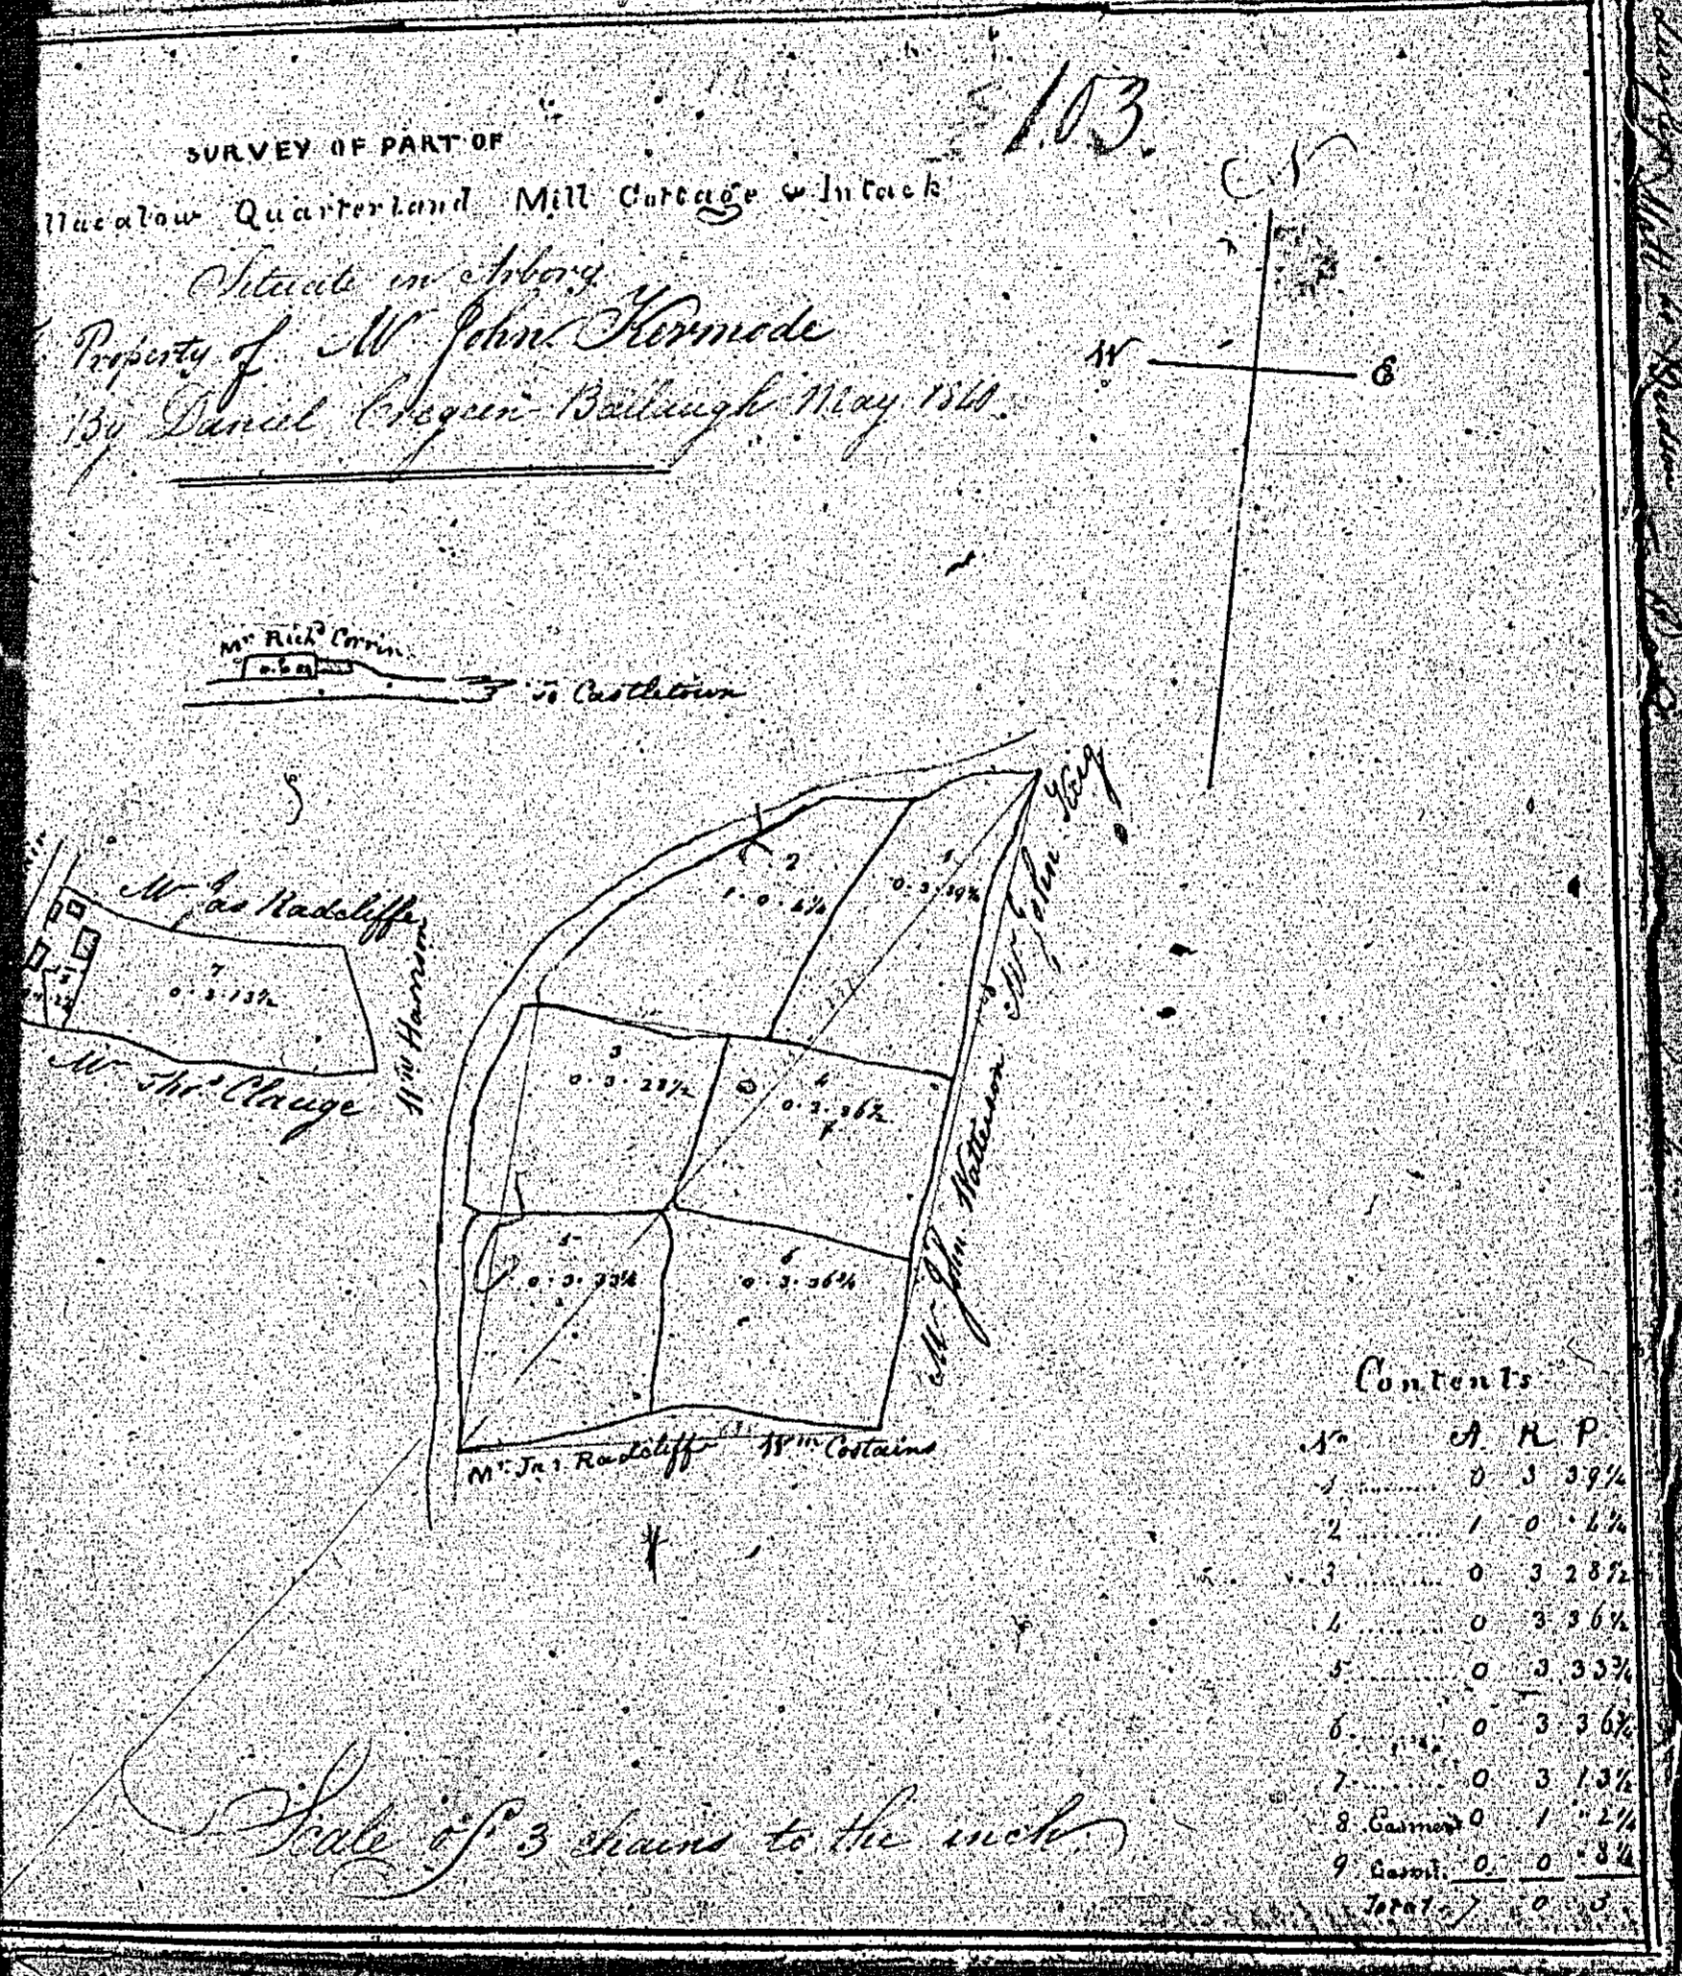 103.
SURVEY OF PART OF
llacalow Quarterland Mill Cottage & Intack
Situate in Arbory
Property of Mr John Kermode
By Daniel Cregeen Ballaugh May
N
W E
Mr Richd Corrin
To Castletown
Mr Jas Radcliffe
7
0.3.13½
Mr Thos Clauge
Wm Harrison
2
1
0.3.39¼
3
0.3.28½
4
0.3.36½
5
0.3.33¾
6
0.3.36¾
Mr John Kag
Mr John Watterson
Mr Jas Radcliffe Wm Costains
Contents
No A R P
1 ......... 0 3 39¼
2 ......... 1 0 4¼
3 ......... 0 3 28½
4 ......... 0 3 36½
5 ......... 0 3 33¾
6 ......... 0 3 36¾
7 ......... 0 3 13½
8 Easment 0 1 " 2¼
9 Easmt. 0 0 " 8¼
Total 7 0 3
Scale of 3 chains to the inch